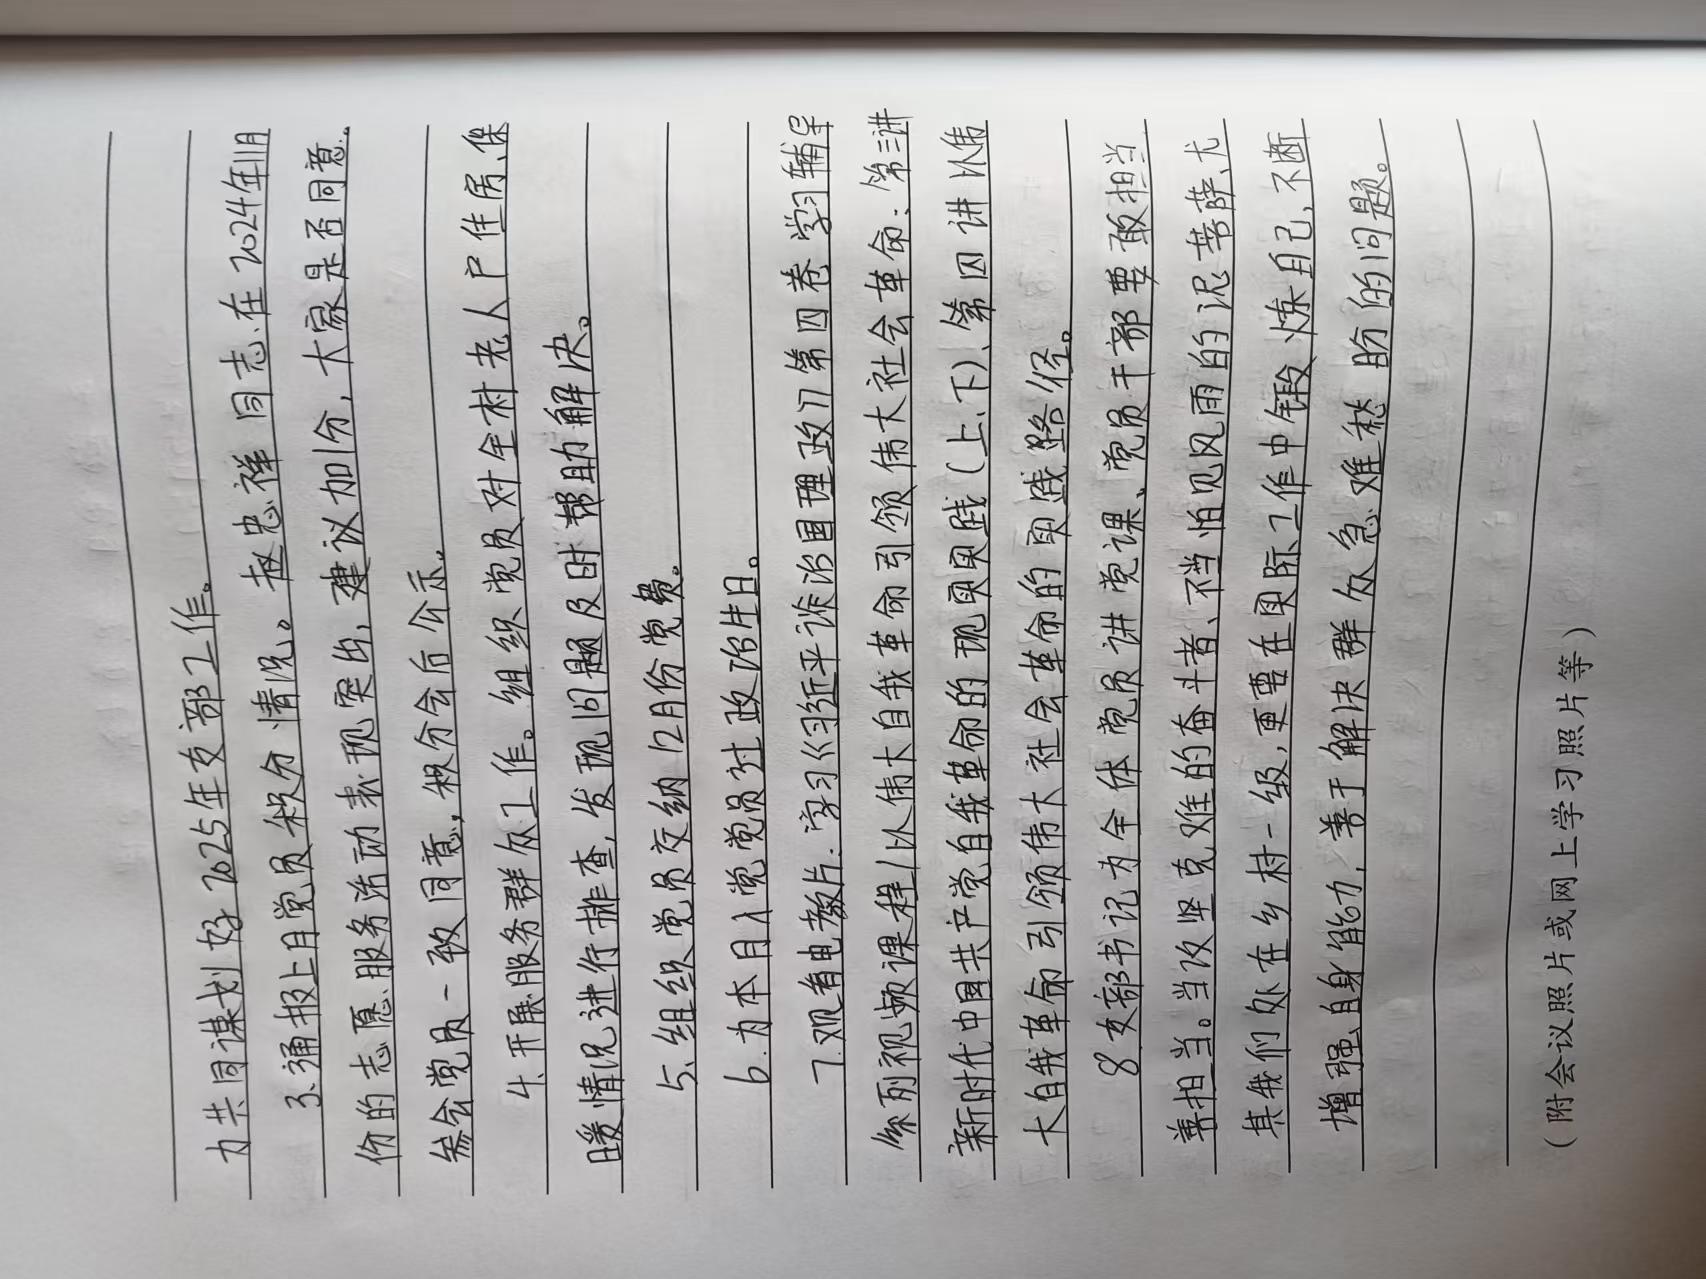 力共同谋划好2025年支部工作。
3、通报上月党员积分情况。赵忠祥同志在2024年11月
份的志愿服务活动表现突出，建议加1分，大家是否同意。
参会党员一致同意，积分会后公示。
4、开展服务群众工作。组织党员对全村老人户住房、保
暖情况进行排查，发现问题及时帮助解决。
5、组织党员交纳12月份党费。
6、为本月入党党员过政治生日。
7、观看电教片：学习《习近平谈治国理政》第四卷学习辅导
系列视频课程/以伟大自我革命引领伟大社会革命：第三讲
新时代中国共产党自我革命的现实实践（上、下）、第四讲 以伟
大自我革命引领伟大社会革命的实践路径。
8、支部书记为全体党员讲党课、党员干部要敢担当
善担当。当攻坚克难的奋斗者、不当怕见风雨的泥菩萨、尤
其我们处在乡村一级，更要在实际工作中锻炼自己，不断
增强自身能力，善于解决群众急难愁盼的问题。
（附会议照片或网上学习照片等）